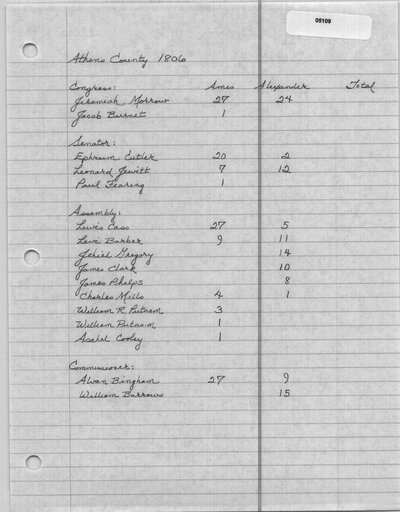 05109
Athens County 1806
Congress: Ames Alexander Total
Jeremiah Morrow 27 24
Jacob Burnet 1
Senator:
Ephraim Cutler 20 2
Leonard Jewitt 7 12
Paul Fearing 1
Assembly:
Lewis Cass 27 5
Levi Barber 9 11
Jehiel Gregory 14
James Clark 10
James Phelps 8
Charles Mills 4 1
William R. Putnam 3
William Putnam 1
Asahel Cooley 1
Commissioner:
Alvan Bingham 27 9
William Barrows 15